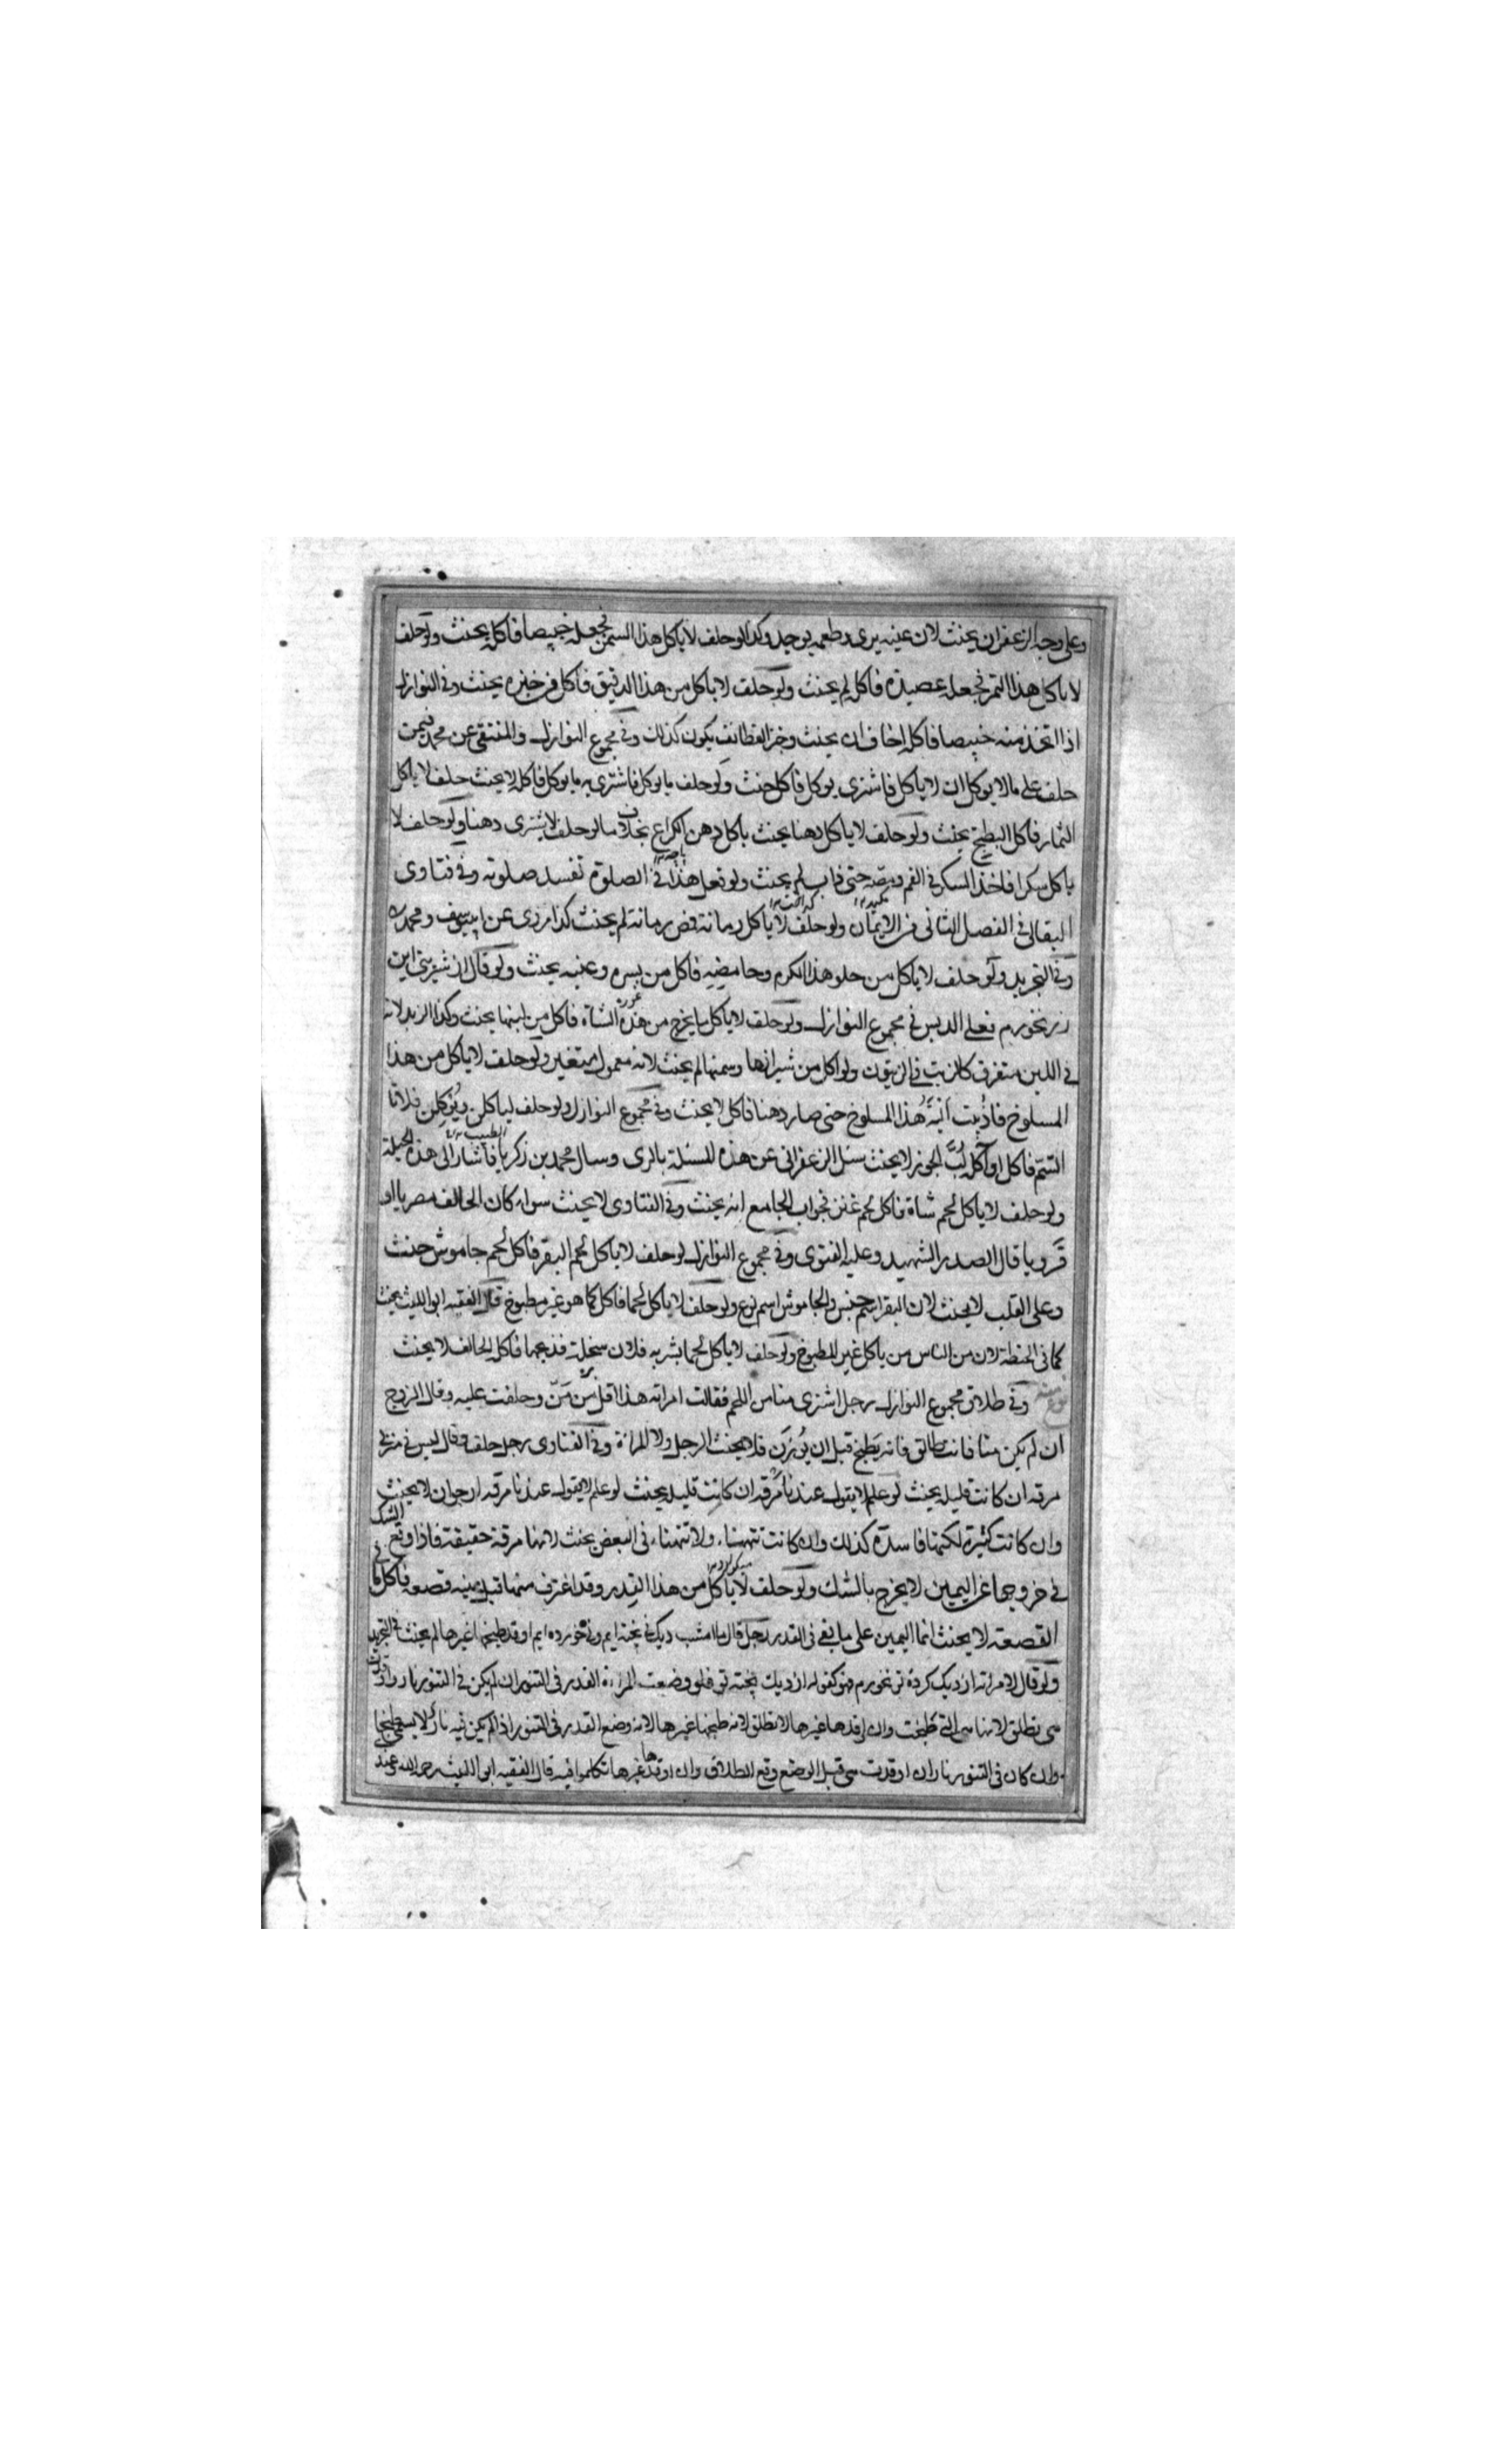 وعلى وجه الزعفران يحنث لان عينه يرى وطعمه يوجد وكذا لو حلف لا ياكل هذا السمن فجعله خبيصا فاكله يحنث ولو حلف
لا ياكل هذا التمر فجعله عصيدة فاكله لم يحنث ولو حلف لا ياكل من هذا الدقيق فاكل من خبزه يحنث وفي النوازل
اذا اتخذ منه خبيصا فاكله اخاف ان يحنث وخبز القطائف يكون كذلك وفي مجموع النوازل والمنتقى عن محمد فيمن
حلف على ما لا يوكل ان لا ياكل فاشترى يوكل فاكل حنث ولو حلف ما يوكل فاشترى به ما يوكل فاكله لا يحنث حلف لا ياكل
الثمار فاكل البطيخ يحنث ولو حلف لا ياكل دهنا يحنث باكل دهن الكراع بخلاف ما لو حلف لا يشترى دهنا ولو حلف لا
ياكل سكرا فاخذ السكر في الفم ومصه حتى ذاب لم يحنث ولو فعل هذا في الصلوة تفسد صلوته وفي فتاوى
البقالي في الفصل الثاني من الايمان ولو حلف لا ياكل رمانة فمص رمانة لم يحنث كذا روى عن ابي يوسف ومحمد
وفي التجريد ولو حلف لا ياكل من حلو هذا الكرم وحامضه فاكل من بسره وعنبه يحنث ولو قال از شيريني اين
رز نخورم فعلى الدبس في مجموع النوازل ولو حلف لا ياكل ما يخرج من هذه الشاة فاكل من لبنها يحنث وكذا الزبد لانه
في اللبن متفرق كالزيت في الزيتون ولو اكل من شيرازها وسمنها لم يحنث لانه معمول متغير ولو حلف لا ياكل من هذا
المسلوخ فاذيبت الية هذا المسلوخ حتى صار دهنا فاكل لا يحنث وفي مجموع النوازل ولو حلف لياكلن ويوكلن فلانا
السم فاكل او اكله لب الجوز لا يحنث سئل الزعفراني عن هذه المسئلة بالري وسال محمد بن زكريا الطبيب فاشار الى هذه الحيلة
ولو حلف لا ياكل لحم شاة فاكل لحم عنز فجواب الجامع انه يحنث وفي الفتاوى لا يحنث سواء كان الحالف مصريا او
قرويا قال الصدر الشهيد وعليه الفتوى وفي مجموع النوازل لو حلف لا ياكل لحم البقر فاكل لحم جاموش حنث
وعلى القلب لا يحنث لان البقر اسم جنس والجاموش اسم نوع ولو حلف لا ياكل لحما فاكل كما هو غير مطبوخ قال الفقيه ابو الليث يحنث
كما في الحنطة لان من الناس من ياكل غير المطبوخ ولو حلف لا ياكل لحما يشتريه فلان سخلة فذبحها فاكل الحالف لا يحنث
نوع منه وفي طلاق مجموع النوازل رجل اشترى منا من اللحم فقالت امراته هذا اقل من من وحلفت عليه وقال الزوج
ان لم يكن منا فانت طالق فانه يطبخ قبل ان يوزن فلا يحنث الرجل ولا المراة وفي الفتاوى رجل حلف وقال ليس في منزلي
مرقه ان كانت قليلة يحنث لو علم لا يقول عندنا مرقه ان كانت قليلة يحنث لو علم لا يقول عندنا مرقه ارجو ان لا يحنث
وان كانت كثيرة لكنها فاسدة كذلك وان كانت تتهناء ولا تتهناء في البعض يحنث لانها مرقة حقيقة فاذا وقع الشك
في خروجها عن اليمين لا يخرج بالشك ولو حلف لا ياكل من هذا القدر وقد اغترف منها قبل يمينه قصعه فاكل ما في
القصعة لا يحنث انما اليمين على ما بقي في القدر رجل قال ما امشب ديك ني پخته ايم وني خورده ايم وقد طبخها غيرها لم يحنث في التجريد
ولو قال لامراته از ديك كرده تو نخورم فهو كقوله از ديك پخته تو فلو وضعت المراة القدر في التنور ان لم يكن في التنور نار واوقدت
هي تطلق لانها هي التي طبخت وان اوقدها غيرها لا تطلق لانه طبخها غيرها لانه وضع القدر في التنور اذا لم يكن فيه نار لا يسمى طبخا
وان كان في التنور نار ان اوقدت هي قبل الوضع وقع الطلاق وان اوقدها غيرها تكلموا فيه قال الفقيه ابو الليث رحمه الله وعند